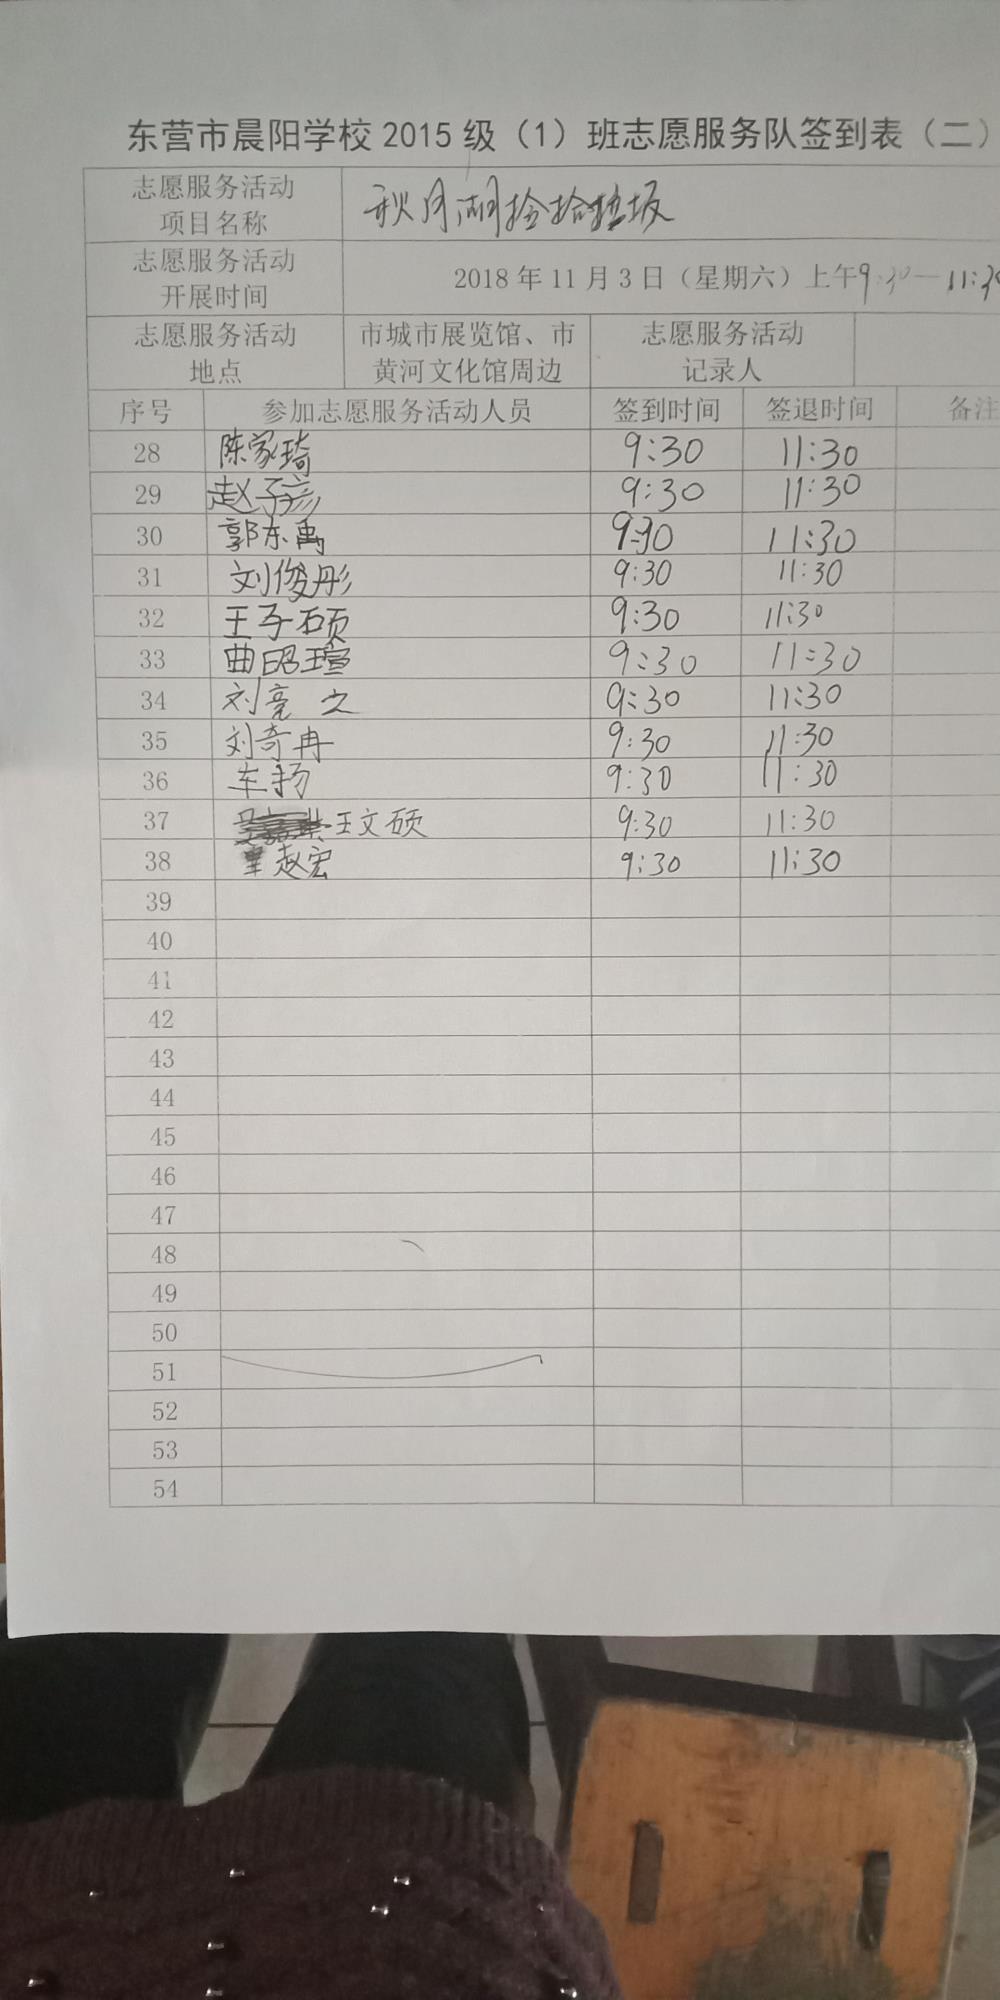 东营市晨阳学校2015级（1）班志愿服务队签到表（二）
志愿服务活动
项目名称
秋月湖捡拾垃圾
志愿服务活动
开展时间
2018年11月3日（星期六）上午9:30—11:30
志愿服务活动
地点
市城市展览馆、市
黄河文化馆周边
志愿服务活动
记录人
序号 参加志愿服务活动人员 签到时间 签退时间 备注
28 陈家琦 9:30 11:30
29 赵子彦 9:30 11:30
30 郭东禹 9:30 11:30
31 刘俊彤 9:30 11:30
32 王子硕 9:30 11:30
33 曲昭瑄 9:30 11:30
34 刘亮之 9:30 11:30
35 刘奇冉 9:30 11:30
36 车扬 9:30 11:30
37 王文硕 9:30 11:30
38 赵宏 9:30 11:30
39
40
41
42
43
44
45
46
47
48
49
50
51
52
53
54